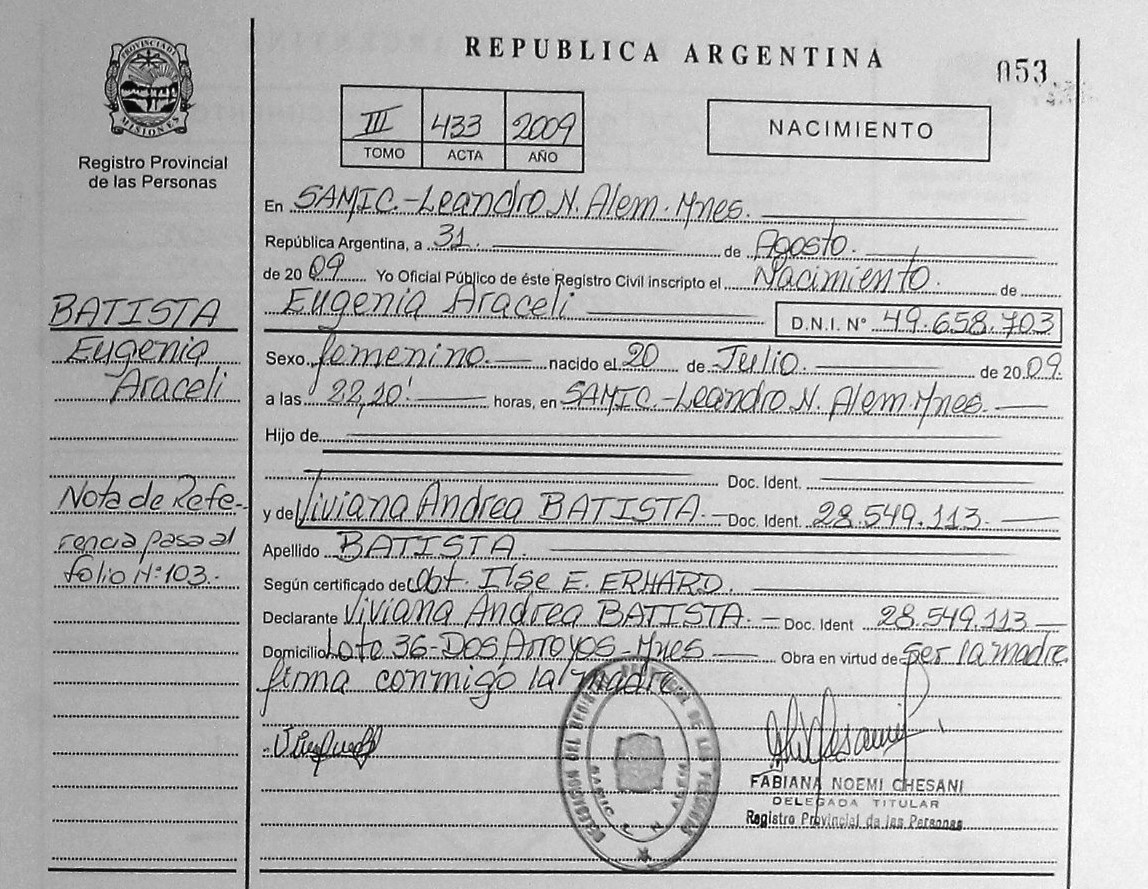 REPUBLICA ARGENTINA
053
PROVINCIA DE
MISIONES
Registro Provincial
de las Personas
III 433 2009
TOMO ACTA AÑO
NACIMIENTO
En SAMIC.-Leandro N. Alem-Mnes.
República Argentina, a 31. de Agosto.
de 2009 Yo Oficial Público de éste Registro Civil inscripto el Nacimiento. de
Eugenia Araceli D.N.I. N° 49.658.703
BATISTA
Eugenia
Araceli
Sexo femenino. nacido el 20 de Julio. de 2009.
a las 22,20' horas, en SAMIC.-Leandro N. Alem-Mnes.
Hijo de
Doc. Ident.
y de Viviana Andrea BATISTA.- Doc. Ident. 28.549.113.
Nota de Refe-
rencia pasa al
folio N°103.-
Apellido BATISTA.
Según certificado de Obt. Ilse E. ERHARD.
Declarante Viviana Andrea BATISTA.- Doc. Ident 28.549.113
Domicilio Lote 36-Dos Arroyos-Mnes Obra en virtud de ser la madre
firma conmigo la madre
FABIANA NOEMI CHESANI
DELEGADA TITULAR
Registro Provincial de las Personas